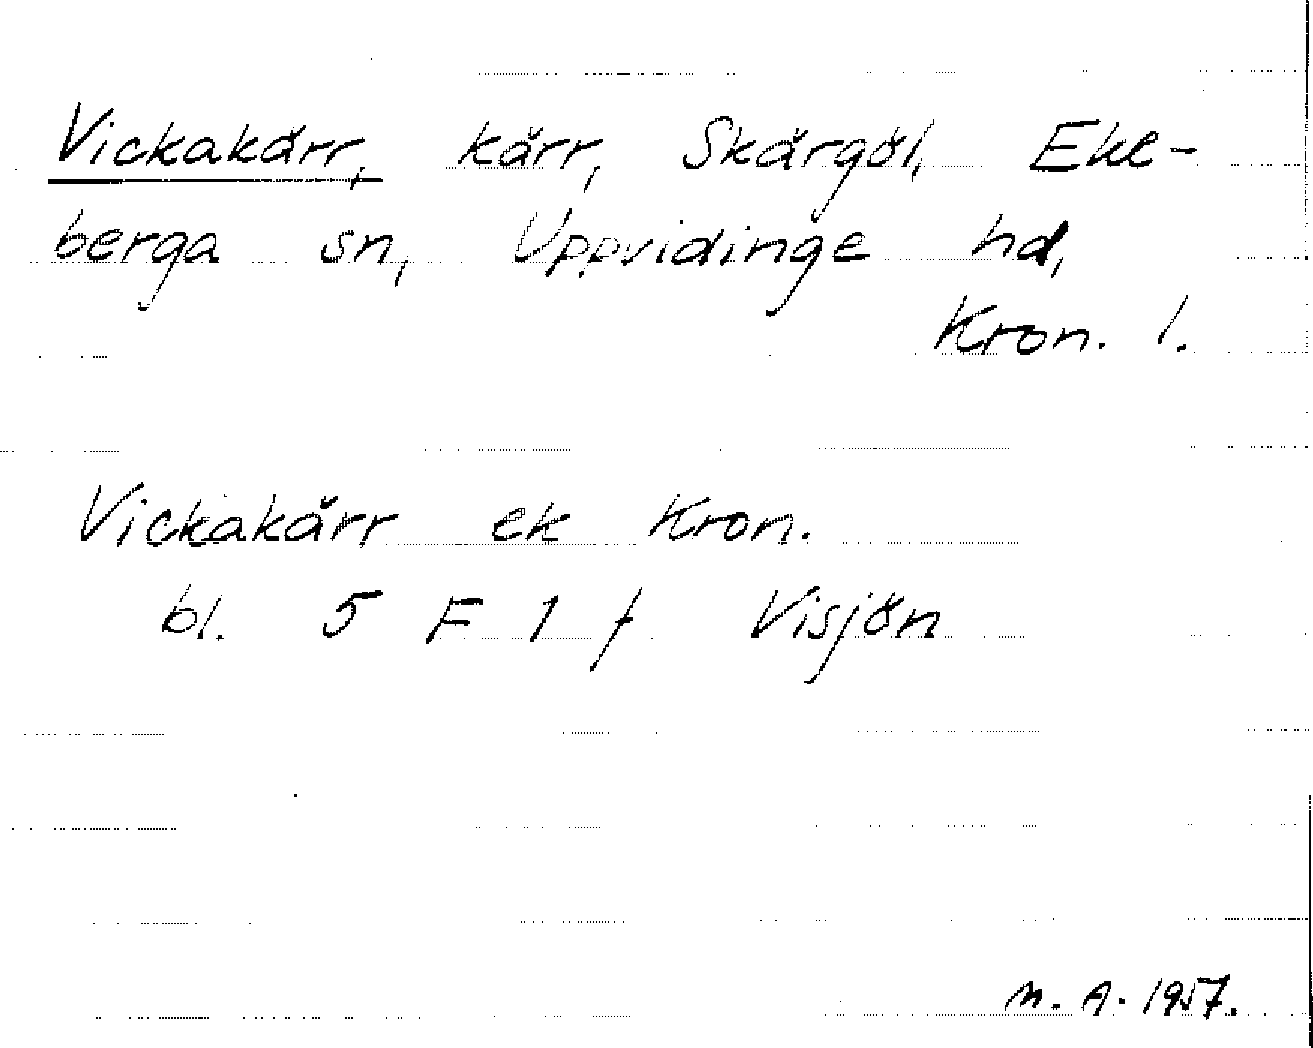 Vickakärr, kärr, Skärgöl, Eke-
berga sn, Uppvidinge hd,
Kron. l.
Vickakärr ek Kron.
bl. 5 F 1 f Visjön
M. A. 1957.